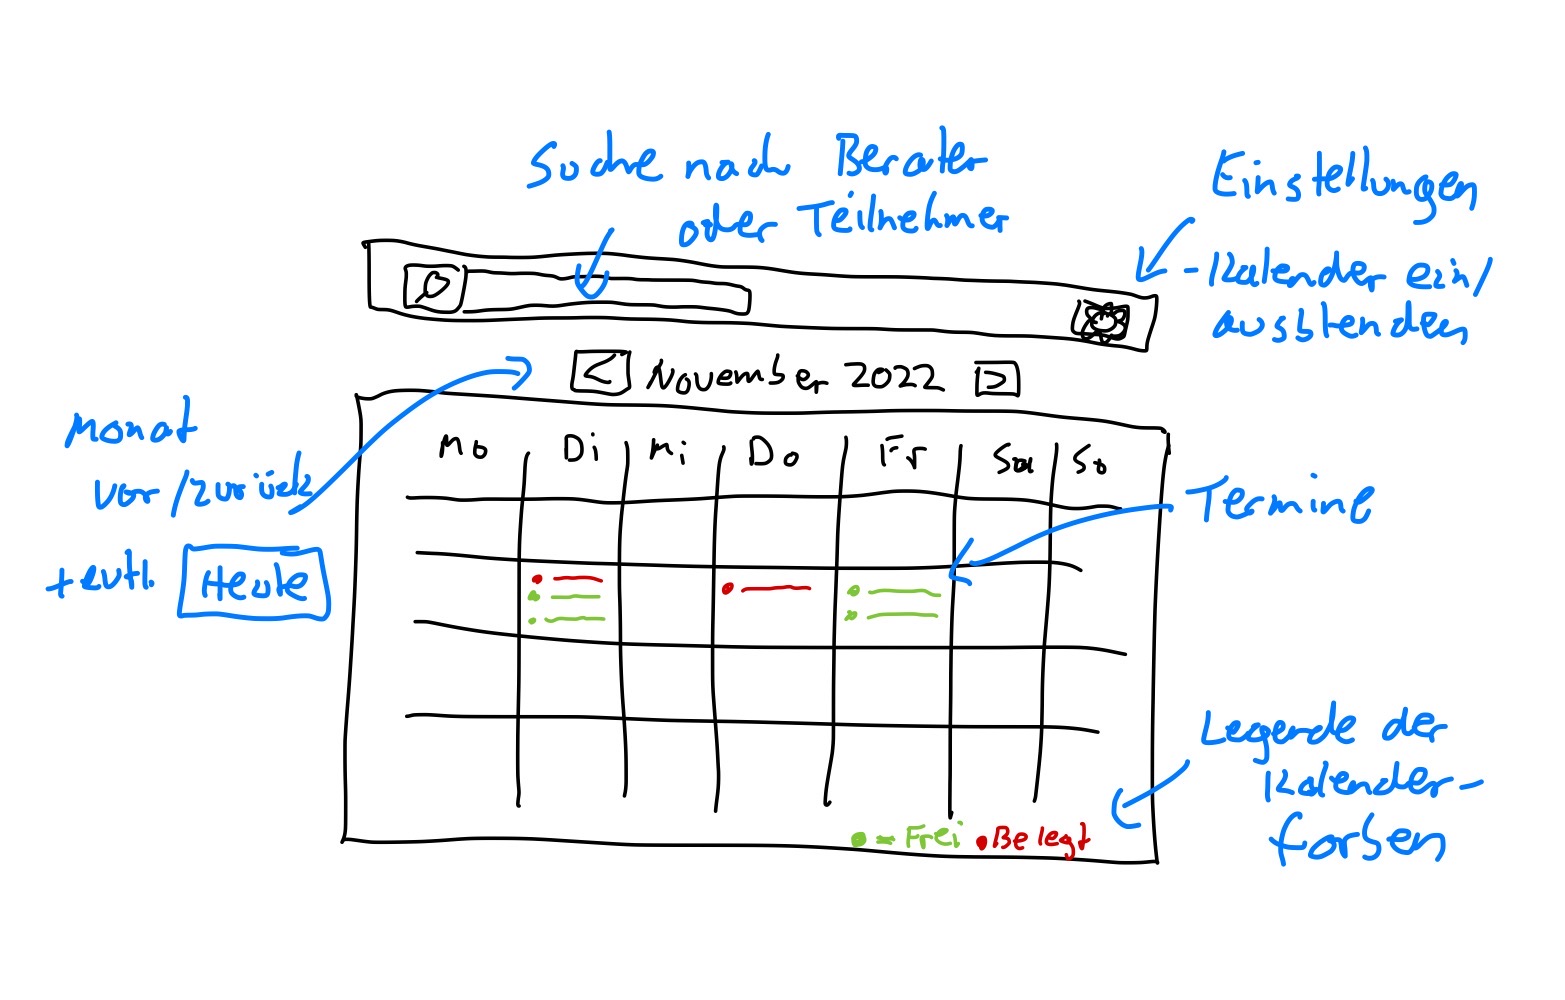 Suche nach Berater
oder Teilnehmer
Einstellungen
- Kalender ein/
ausblenden
< November 2022 >
Monat
vor/zurück
+ evtl. Heute
Mo Di Mi Do Fr Sa So
Termine
Legende der
Kalender-
farben
= Frei Belegt